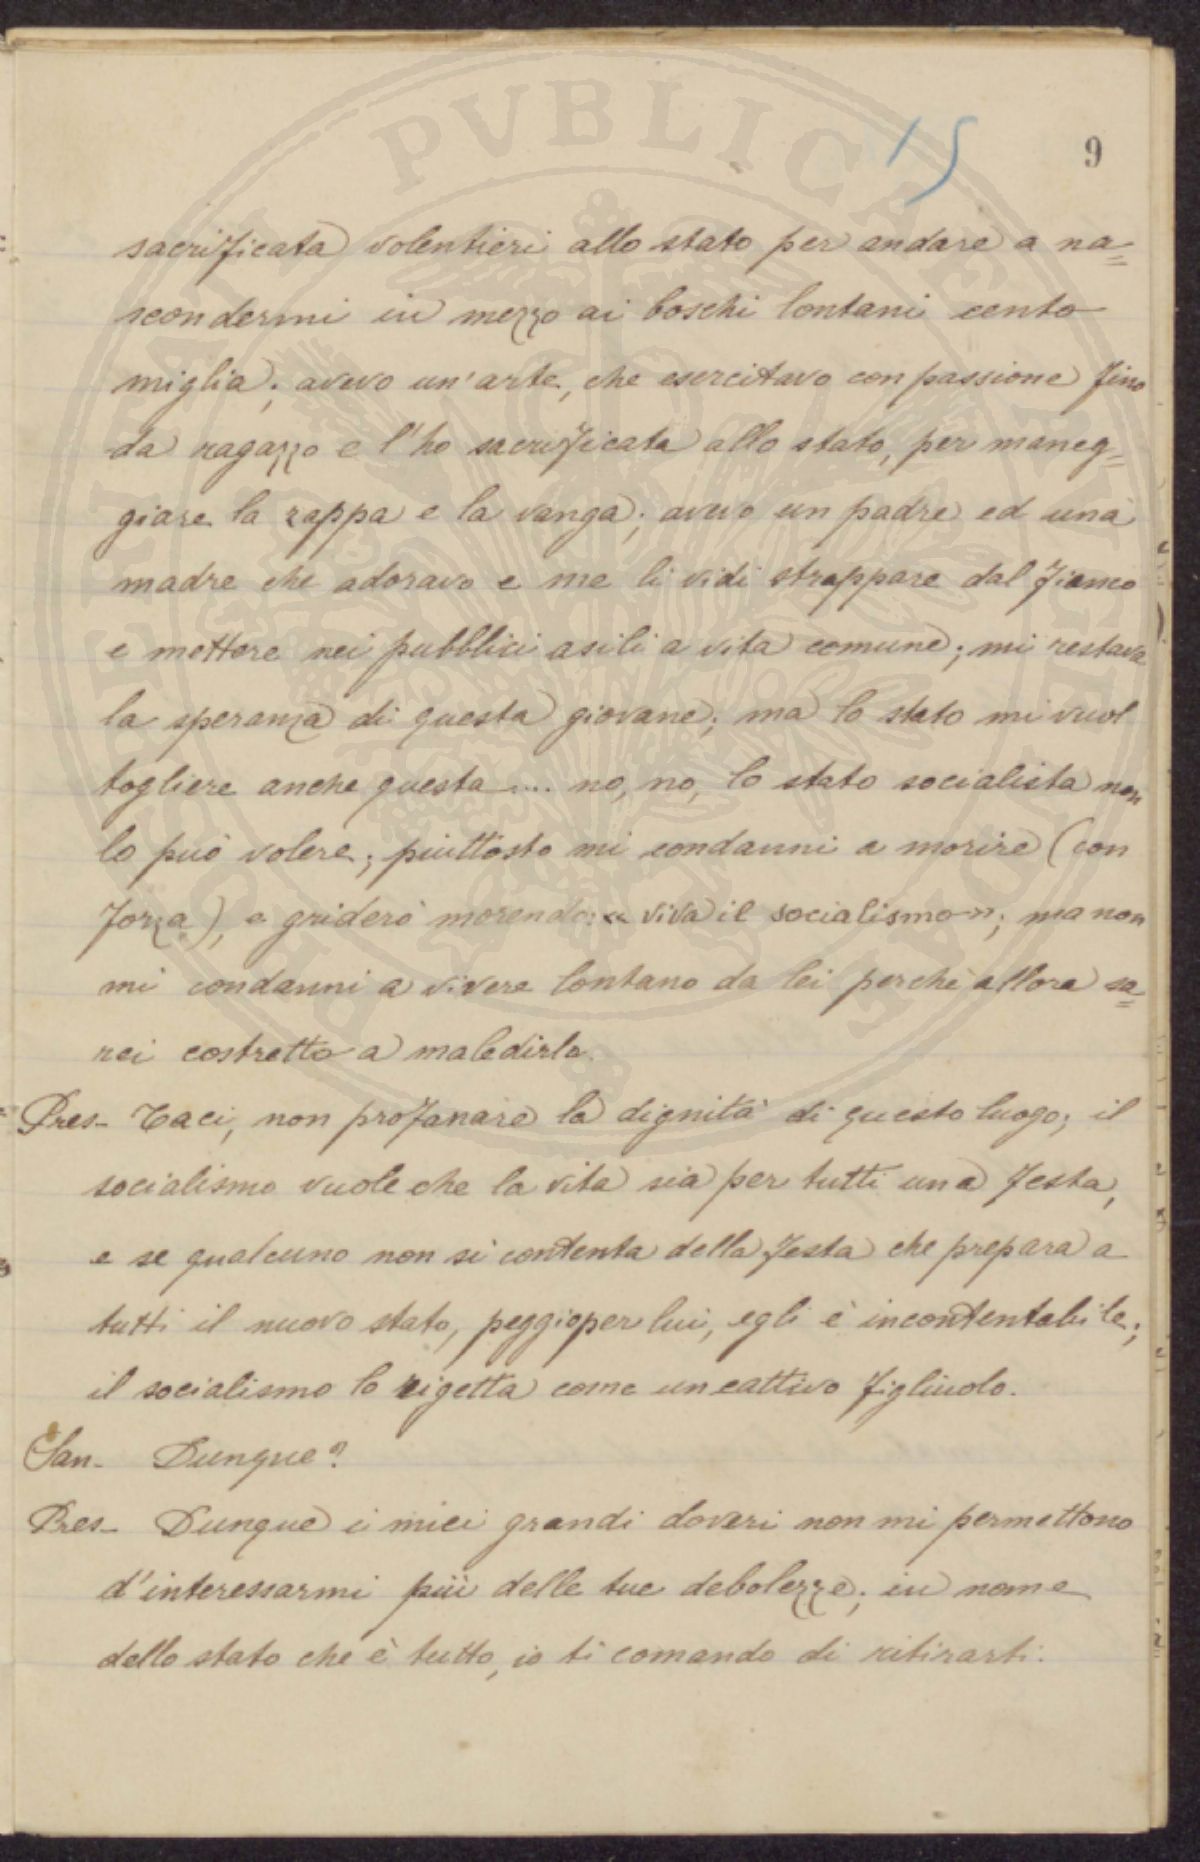 15
9
sacrificata volentieri allo stato per andare a na=
scondermi in mezzo ai boschi lontani cento
miglia; avevo un'arte, che esercitavo con passione fino
da ragazzo e l'ho sacrificata allo stato, per maneg=
giare la zappa e la vanga; avevo un padre ed una
madre che adoravo e me li vidi strappare dal fianco
e mettere nei pubblici asili a vita comune; mi restava
la speranza di questa giovane; ma lo stato mi vuol
togliere anche questa .... no, no, lo stato socialista non
lo può volere; piuttosto mi condanni a morire (con
forza), e griderò morendo: « viva il socialismo »; ma non
mi condanni a vivere lontano da lei perchè allora sa=
rei costretto a maledirlo.
Pres- Taci, non profanare la dignità di questo luogo; il
socialismo vuole che la vita sia per tutti una festa,
e se qualcuno non si contenta della festa che prepara a
tutti il nuovo stato, peggio per lui, egli è incontentabile;
il socialismo lo rigetta come un cattivo figliuolo.
San- Dunque?
Pres- Dunque i miei grandi doveri non mi permettono
d'interessarmi più delle tue debolezze; in nome
dello stato che è tutto, io ti comando di ritirarti.